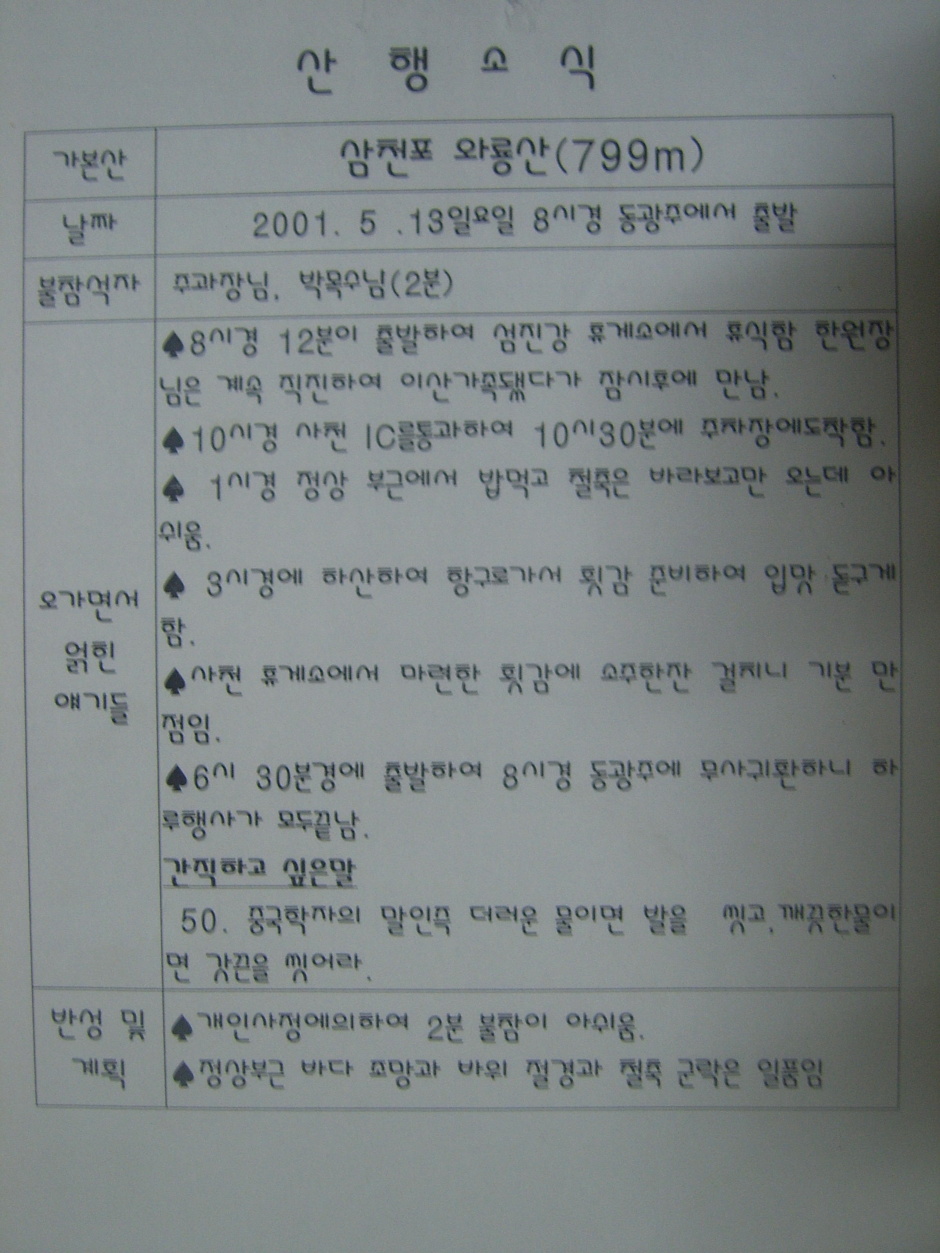 산 행 소 식
가본산 삼천포 와룡산(799m)
날짜 2001. 5 .13일요일 8시경 동광주에서 출발
불참석자 주과장님, 박목수님(2분)
♠8시경 12분이 출발하여 섬진강 휴게소에서 휴식함 한원장
님은 계속 직진하여 이산가족됐다가 잠시후에 만남.
♠10시경 사천 IC를통과하여 10시30분에 주차장에도착함.
♠ 1시경 정상 부근에서 밥먹고 철축은 바라보고만 오는데 아
쉬움.
♠ 3시경에 하산하여 항구로가서 횟감 준비하여 입맛 돋구게
함.
♠사천 휴게소에서 마련한 횟감에 소주한잔 걸치니 기분 만
점임.
♠6시 30분경에 출발하여 8시경 동광주에 무사귀환하니 하
루행사가 모두끝남.
오가면서
얽힌
얘기들
간직하고 싶은말
50. 중국학자의 말인즉 더러운 물이면 발을 씻고,깨끗한물이
면 갓끈을 씻어라.
반성 및
계획
♠개인사정에의하여 2분 불참이 아쉬움.
♠정상부근 바다 조망과 바위 절경과 철축 군락은 일품임